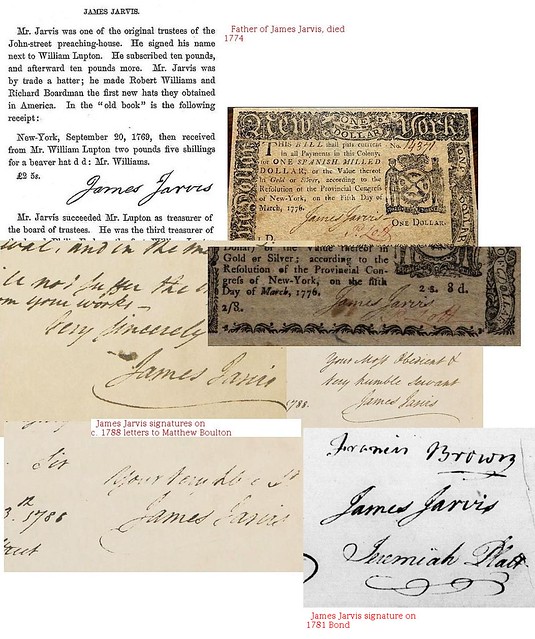 JAMES JARVIS.
Mr. Jarvis was one of the original trustees of the
John-street preaching-house. He signed his name
next to William Lupton. He subscribed ten pounds,
and afterward ten pounds more. Mr. Jarvis was
by trade a hatter; he made Robert Williams and
Richard Boardman the first new hats they obtained
in America. In the "old book" is the following
receipt:
New-York, September 20, 1769, then received
from Mr. William Lupton two pounds five shillings
for a beaver hat d d: Mr. Williams.
£2 5s.
James Jarvis
Mr. Jarvis succeeded Mr. Lupton as treasurer of
the board of trustees. He was the third treasurer of
Father of James Jarvis, died
1774
New ONE York
DOLLAR
No. 14371
THIS BILL shall pass current
in all Payments in this Colony,
for ONE SPANISH MILLED
DOLLAR; or the Value thereof
in Gold or Silver, according to the
Resolution of the Provincial Congress
of New-York, on the Fifth Day of
March, 1776.
James Jarvis
ONE DOLLAR.
Dollar or the Value thereof in
Gold or Silver; according to the
Resolution of the Provincial Con-
gress of New-York, on the fifth
Day of March, 1776. 2 s. 8 d.
2/3.
James Jarvis
and in the
not suffer the
your works -
Very Sincerely
James Jarvis
1788.
Your Most Obedient &
Very humble Servant
James Jarvis
James Jarvis signatures on
c. 1788 letters to Matthew Boulton
Sir
Your
1788
James Jarvis
Francis Brown
James Jarvis
Jeremiah Platt
James Jarvis signature on
1781 Bond